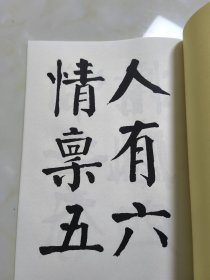 人有六
情禀五